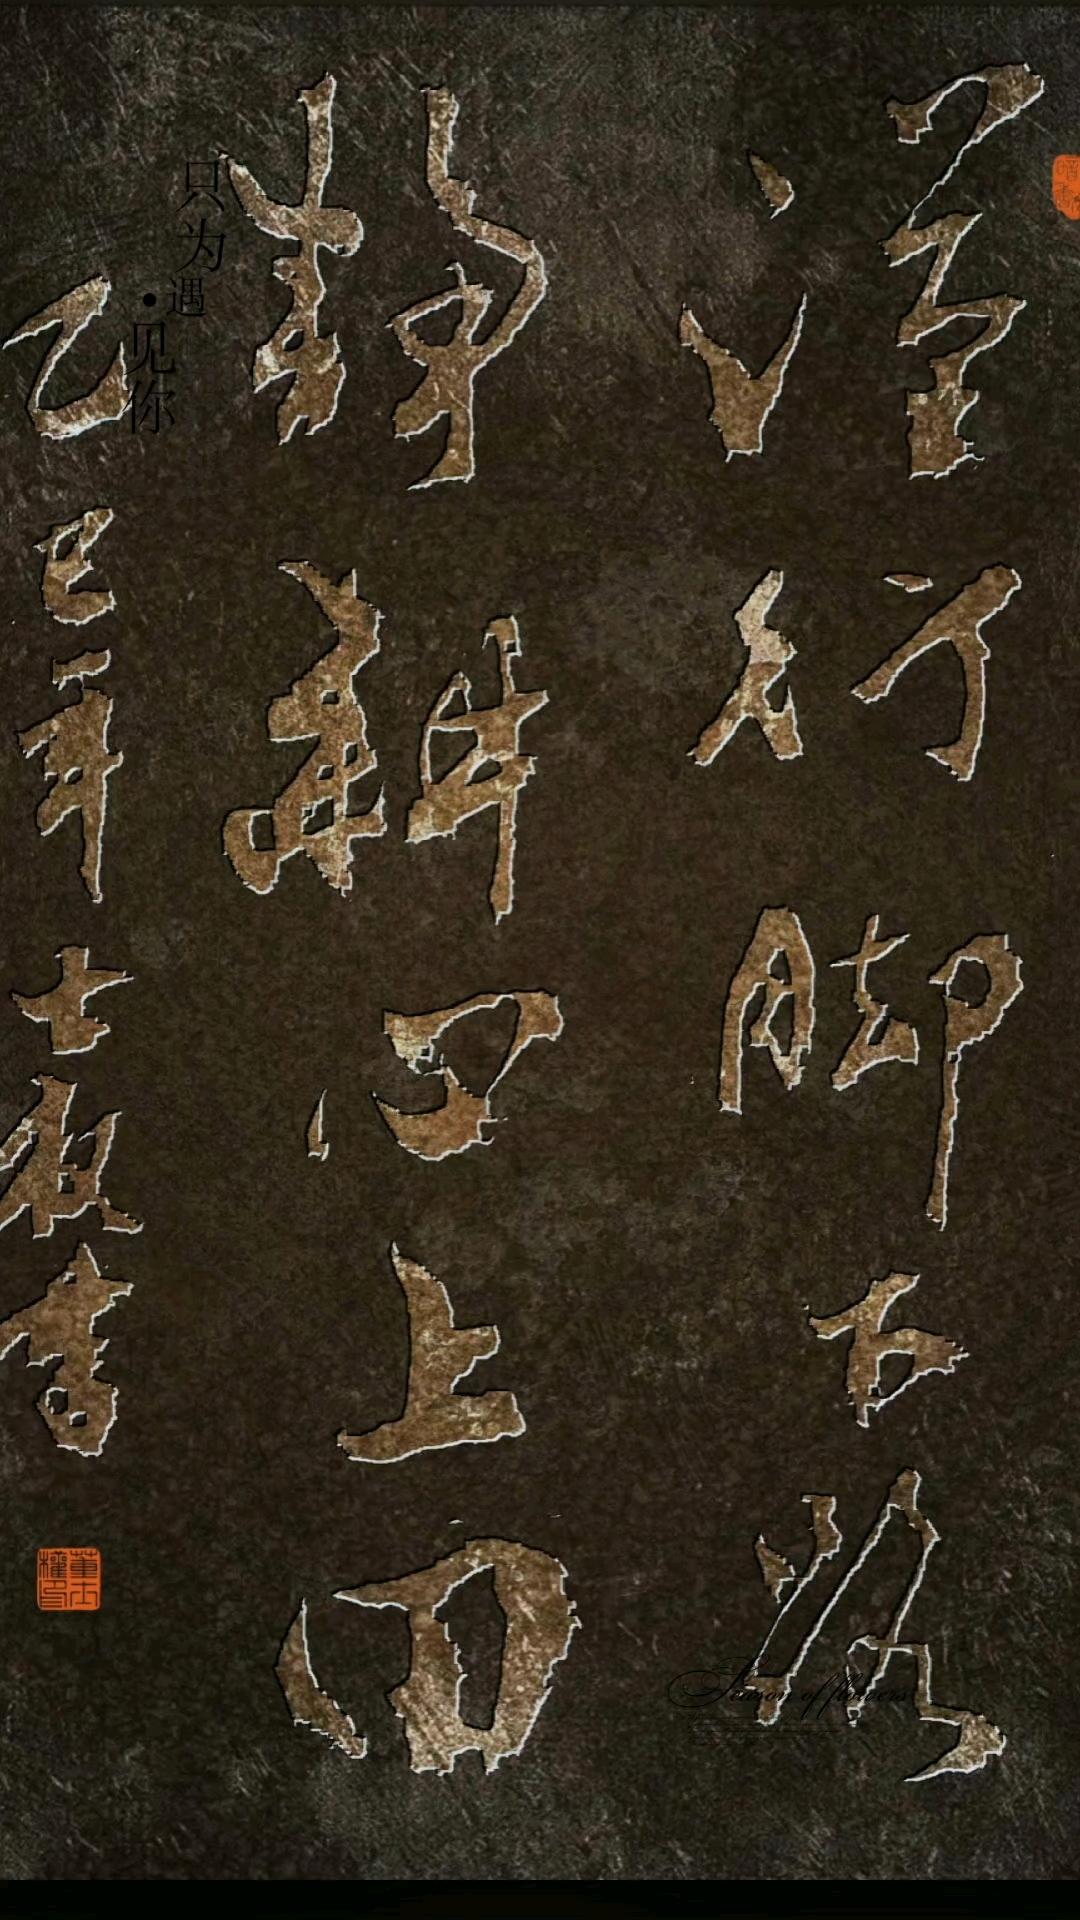 深行脚下路
静耕心上田
乙巳年士权书
只为
遇
见你
Season of flowers
董士權印